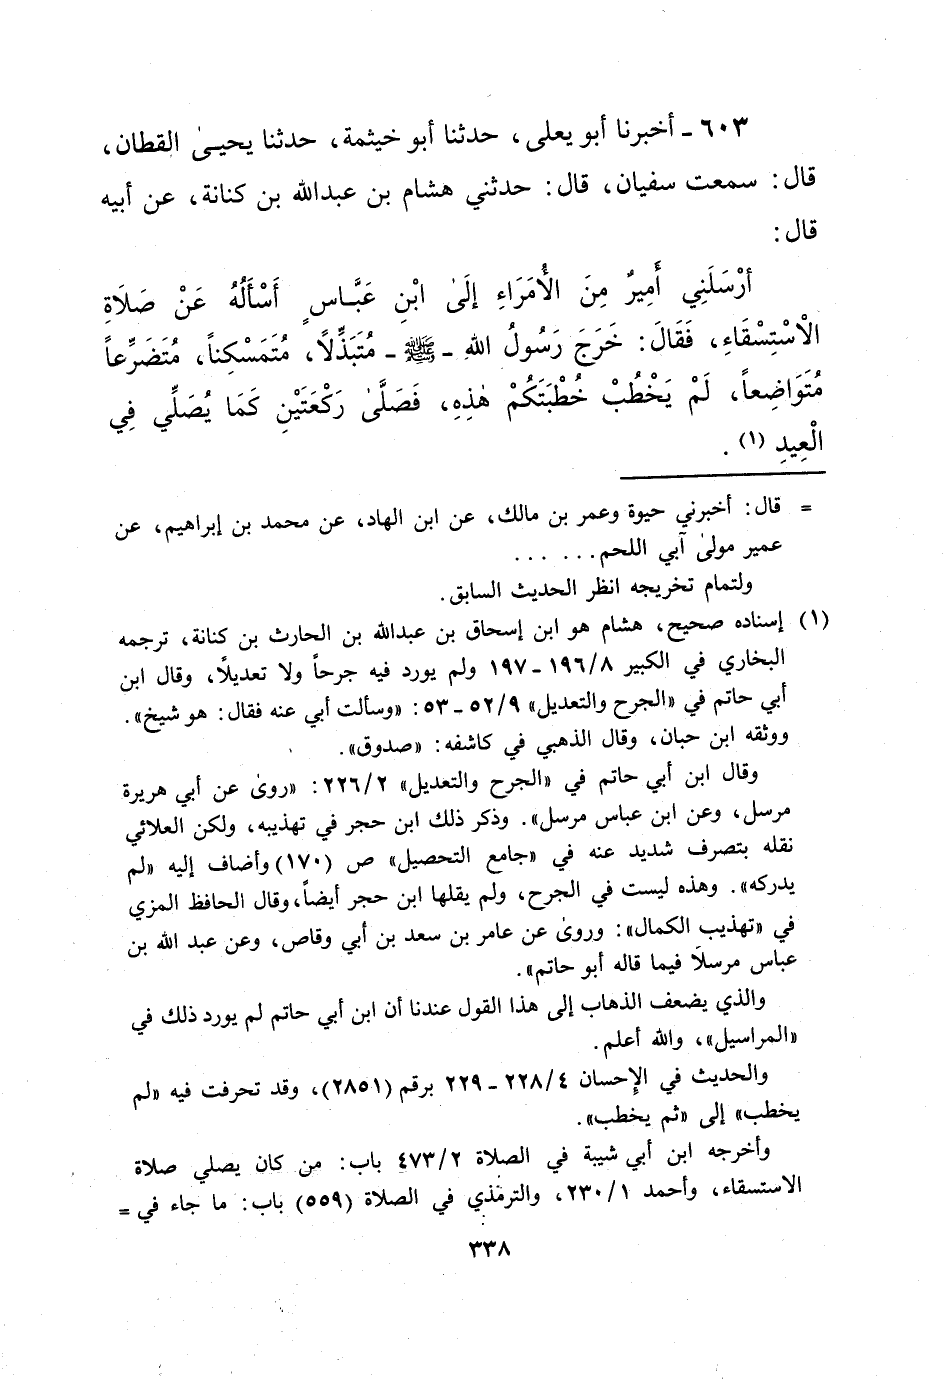 ٦٠٣ ـ أخبرنا أبو يعلى، حدثنا أبو خيثمة، حدثنا يحيىٰ القطان،
قال: سمعت سفيان، قال: حدثني هشام بن عبدالله بن كنانة، عن أبيه
قال:
أَرْسَلَنِي أَمِيرٌ مِنَ الْأُمَرَاءِ إِلَىٰ ابْنِ عَبَّاسٍ أَسْأَلُهُ عَنْ صَلَاةِ
الْاسْتِسْقَاءِ، فَقَالَ: خَرَجَ رَسُولُ اللهِ ـ ﷺ ـ مُتَبَذِّلاً، مُتَمَسْكِناً، مُتَضَرِّعاً
مُتَوَاضِعاً، لَمْ يَخْطُبْ خُطْبَتَكُمْ هٰذِهِ، فَصَلَّىٰ رَكْعَتَيْنِ كَمَا يُصَلِّي فِي
الْعِيدِ (١).
= قال: أخبرني حيوة وعمر بن مالك، عن ابن الهاد، عن محمد بن إبراهيم، عن
عمير مولىٰ آبي اللحم... ...
ولتمام تخريجه انظر الحديث السابق.
(١) إسناده صحيح، هشام هو ابن إسحاق بن عبدالله بن الحارث بن كنانة، ترجمه
البخاري في الكبير ١٩٦/٨ ـ ١٩٧ ولم يورد فيه جرحاً ولا تعديلاً، وقال ابن
أبي حاتم في «الجرح والتعديل» ٥٢/٩ ـ ٥٣: «وسألت أبي عنه فقال: هو شيخ».
ووثقه ابن حبان، وقال الذهبي في كاشفه: «صدوق».
وقال ابن أبي حاتم في «الجرح والتعديل» ٢٢٦/٢: «روىٰ عن أبي هريرة
مرسل، وعن ابن عباس مرسل». وذكر ذلك ابن حجر في تهذيبه، ولكن العلائي
نقله بتصرف شديد عنه في «جامع التحصيل» ص (١٧٠) وأضاف إليه «لم
يدركه». وهذه ليست في الجرح، ولم يقلها ابن حجر أيضاً، وقال الحافظ المزي
في «تهذيب الكمال»: وروىٰ عن عامر بن سعد بن أبي وقاص، وعن عبد الله بن
عباس مرسلاً فيما قاله أبو حاتم».
والذي يضعف الذهاب إلى هذا القول عندنا أن ابن أبي حاتم لم يورد ذلك في
«المراسيل»، والله أعلم.
والحديث في الإحسان ٢٢٨/٤ ـ ٢٢٩ برقم (٢٨٥١)، وقد تحرفت فيه «لم
يخطب» إلى «ثم يخطب».
وأخرجه ابن أبي شيبة في الصلاة ٤٧٣/٢ باب: من كان يصلي صلاة
الاستسقاء، وأحمد ٢٣٠/١، والترمذي في الصلاة (٥٥٩) باب: ما جاء في =
٣٣٨